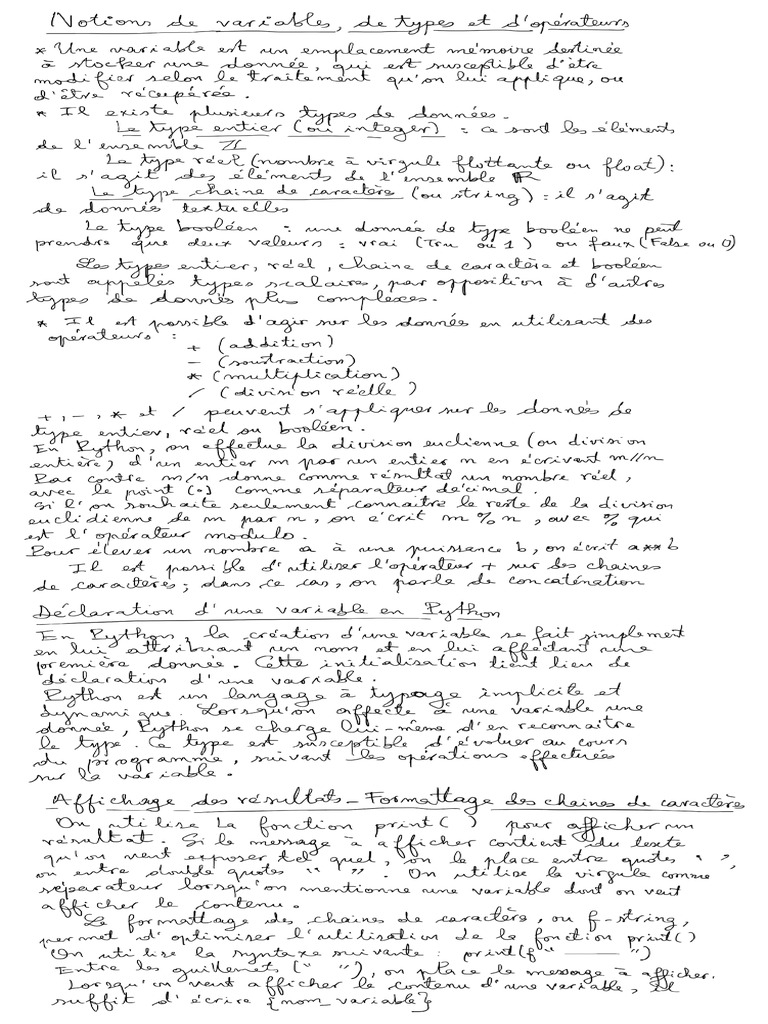 Notions de variables, de types et d'opérateurs
* Une variable est un emplacement mémoire destinée
à stocker une donnée, qui est susceptible d'être
modifier selon le traitement qu'on lui applique, ou
d'être récupérée.
* Il existe plusieurs types de données.
Le type entier (ou integer) : ce sont les éléments
de l'ensemble ℤ
Le type réel (nombre à virgule flottante ou float) :
il s'agit des éléments de l'ensemble ℝ
Le type chaine de caractère (ou string) : il s'agit
de données textuelles
Le type booléen : une donnée de type booléen ne peut
prendre que deux valeurs : vrai (Tru ou 1) ou faux (False ou 0)
Les types entier, réel, chaine de caractère et booléen
sont appelés types scalaires, par opposition à d'autres
types de donnés plus complexes.
* Il est possible d'agir sur les données en utilisant des
opérateurs :
+ (addition)
- (soustraction)
* (multiplication)
/ (division réelle)
+, -, * et / peuvent s'appliquer sur les données de
type entier, réel ou booléen.
En Python, on effectue la division euclienne (ou division
entière) d'un entier m par un entier n en écrivant m//n
Par contre m/n donne comme résultat un nombre réel,
avec le point (.) comme séparateur décimal.
Si l'on souhaite seulement connaitre le reste de la division
euclidienne de m par n, on écrit m % n, avec % qui
est l'opérateur modulo.
Pour élever un nombre a à une puissance b, on écrit a**b
Il est possible d'utiliser l'opérateur + sur les chaines
de caractères ; dans ce cas, on parle de concaténation
Déclaration d'une variable en Python
En Python, la création d'une variable se fait simplement
en lui attribuant un nom et en lui affectant une
première donnée. Cette initialisation tient lieu de
déclaration d'une variable.
Python est un langage à typage implicite et
dynamique. Lorsqu'on affecte à une variable une
donnée, Python se charge lui-même d'en reconnaitre
le type. Ce type est susceptible d'évoluer au cours
du programme, suivant les opérations effectuées
sur la variable.
Affichage des résultats - Formattage des chaines de caractères
On utilise la fonction print( ) pour afficher un
résultat. Si le message à afficher contient du texte
qu'on veut exposer tel quel, on le place entre quotes ‘ ’,
ou entre double quotes “ ”. On utilise la virgule comme
séparateur lorsqu'on mentionne une variable dont on veut
afficher le contenu.
Le formattage des chaines de caractère, ou f-string,
permet d'optimiser l'utilisation de la fonction print()
On utilise la syntaxe suivante : print(f“ _____ ”)
Entre les guillemets (“ ”), on place le message à afficher.
Lorsqu'on veut afficher le contenu d'une variable, il
suffit d'écrire {nom_variable}